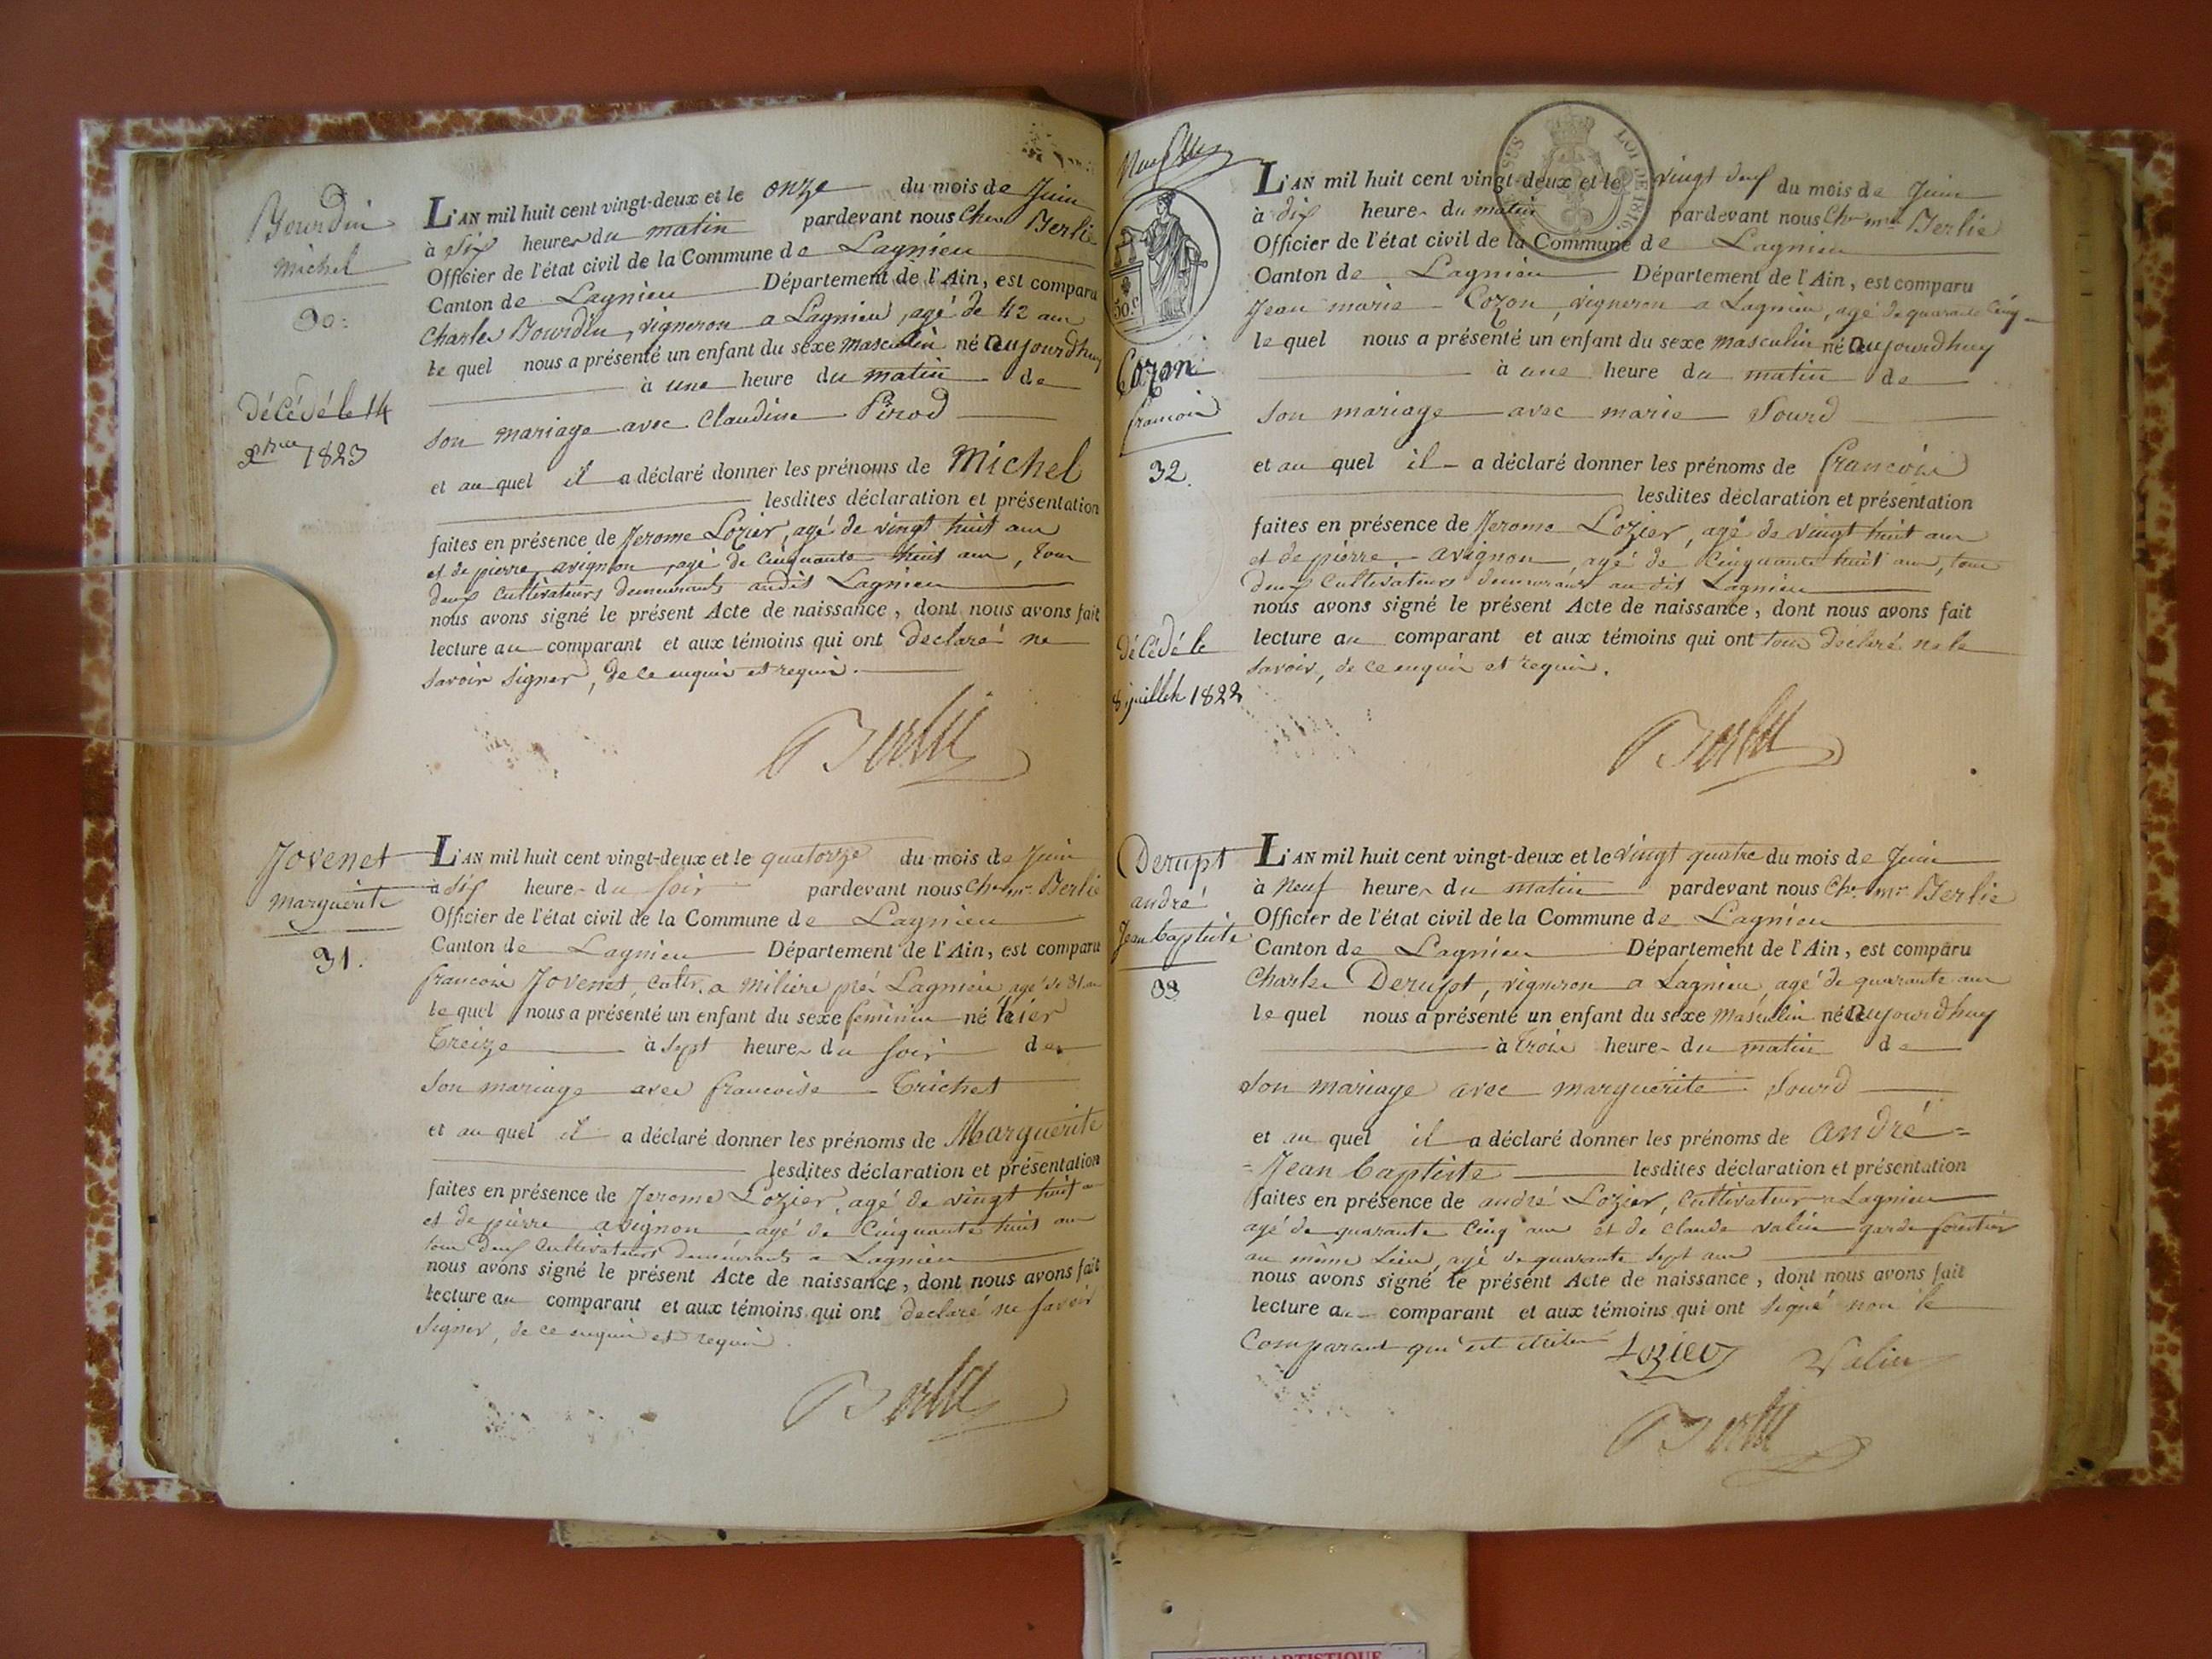 Bourdin
Michel
30.
décédé le 14
1823
L'AN mil huit cent vingt-deux et le onze du mois de Juin
à dix heures du matin pardevant nous Berlie
Officier de l'état civil de la Commune de Lagnieu
Canton de Lagnieu Département de l'Ain, est comparu
Charles Bourdin, vigneron a Lagnieu, agé de 42 ans
le quel nous a présenté un enfant du sexe masculin né aujourdhuy
à une heure du matin de
son mariage avec Claudine Pirod
et au quel il a déclaré donner les prénoms de Michel
lesdites déclaration et présentation
faites en présence de Jerome Lozier, agé de vingt huit ans
et de pierre avignon, agé de Cinquante huit ans, tous
deux Cultivateurs demeurants audit Lagnieu
nous avons signé le présent Acte de naissance, dont nous avons fait
lecture au comparant et aux témoins qui ont declaré ne
savoir signer, de ce enquis et requis.
Berlie
Jovenet
marguerite
31.
L'AN mil huit cent vingt-deux et le quatorze du mois de Juin
à dix heures du soir pardevant nous Ch. mie Berlie
Officier de l'état civil de la Commune de Lagnieu
Canton de Lagnieu Département de l'Ain, est comparu
francois Jovenet, cultiv. a Miliere près Lagnieu, agé de 31 an
le quel nous a présenté un enfant du sexe feminin né hier
Treize à sept heures du soir de
son mariage avec francoise Trichet
et au quel il a déclaré donner les prénoms de Marguerite
lesdites déclaration et présentation
faites en présence de Jerome Lozier, agé de vingt huit
et de pierre avignon agé de Cinquante huit ans
tous deux Cultivateurs demeurants a Lagnieu
nous avons signé le présent Acte de naissance, dont nous avons fait
lecture au comparant et aux témoins qui ont declaré ne savoir
signer, de ce enquis et requis.
Berlie
LOI DE 1816
50.c
Cozon
francois
32.
décédé le
8 juillet 1822
L'AN mil huit cent vingt-deux et le vingt deux du mois de Juin
à dix heures du matin pardevant nous Ch. mie Berlie
Officier de l'état civil de la Commune de Lagnieu
Canton de Lagnieu Département de l'Ain, est comparu
Jean marie Cozon, vigneron a Lagnieu, agé de quarante Cinq
le quel nous a présenté un enfant du sexe masculin né aujourdhuy
à une heure du matin de
son mariage avec marie Sourd
et au quel il a déclaré donner les prénoms de francois
lesdites déclaration et présentation
faites en présence de Jerome Lozier, agé de vingt huit ans
et de pierre avignon, agé de Cinquante huit ans, tous
deux Cultivateurs demeurant au dit Lagnieu
nous avons signé le présent Acte de naissance, dont nous avons fait
lecture au comparant et aux témoins qui ont tous declaré ne le
savoir, de ce enquis et requis.
Berlie
Derupt
andré
Jean baptiste
33
L'AN mil huit cent vingt-deux et le vingt quatre du mois de Juin
à neuf heures du matin pardevant nous Ch. mie Berlie
Officier de l'état civil de la Commune de Lagnieu
Canton de Lagnieu Département de l'Ain, est comparu
Charles Derupt, vigneron a Lagnieu, agé de quarante ans
le quel nous a présenté un enfant du sexe masculin né aujourdhuy
à trois heures du matin de
son mariage avec marguerite Sourd
et au quel il a déclaré donner les prénoms de andré =
= Jean baptiste lesdites déclaration et présentation
faites en présence de andré Lozier, cultivateur a Lagnieu
agé de quarante Cinq ans et de claude valin garde forestier
au même Lieu, agé de quarante sept ans
nous avons signé le présent Acte de naissance, dont nous avons fait
lecture au comparant et aux témoins qui ont signé non le
Comparant qui est illitéré
Lozier Valin
Berlie